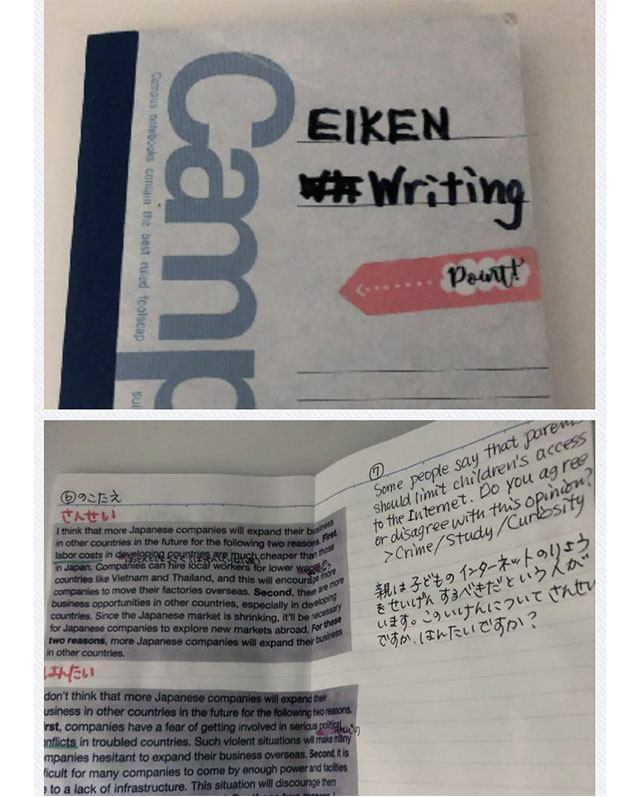 Camp
Campus notebooks contain the best ruled foolscap
EIKEN
Writing
Point!
⑥のこたえ
さんせい
I think that more Japanese companies will expand their business
in other countries in the future for the following two reasons. First,
labor costs in developing countries are much cheaper than those
in Japan. Companies can hire local workers for lower wages
countries like Vietnam and Thailand, and this will encourage more
companies to move their factories overseas. Second, there are more
business opportunities in other countries, especially in developing
countries. Since the Japanese market is shrinking, it'll be necessary
for Japanese companies to explore new markets abroad. For these
two reasons, more Japanese companies will expand their business
in other countries.
はんたい
don't think that more Japanese companies will expand their
usiness in other countries in the future for the following two reasons.
rst, companies have a fear of getting involved in serious political
nflicts in troubled countries. Such violent situations will make many
mpanies hesitant to expand their business overseas. Second, it is
ficult for many companies to come by enough power and facilities
e to a lack of infrastructure. This situation will discourage them
⑦
Some people say that paren
should limit children's access
to the Internet. Do you agree
or disagree with this opinion?
>Crime/Study/Curiosity
親は子どものインターネットのりよう
をせいげんするべきだという人が
います。このいけんについてさんせい
ですか、はんたいですか？